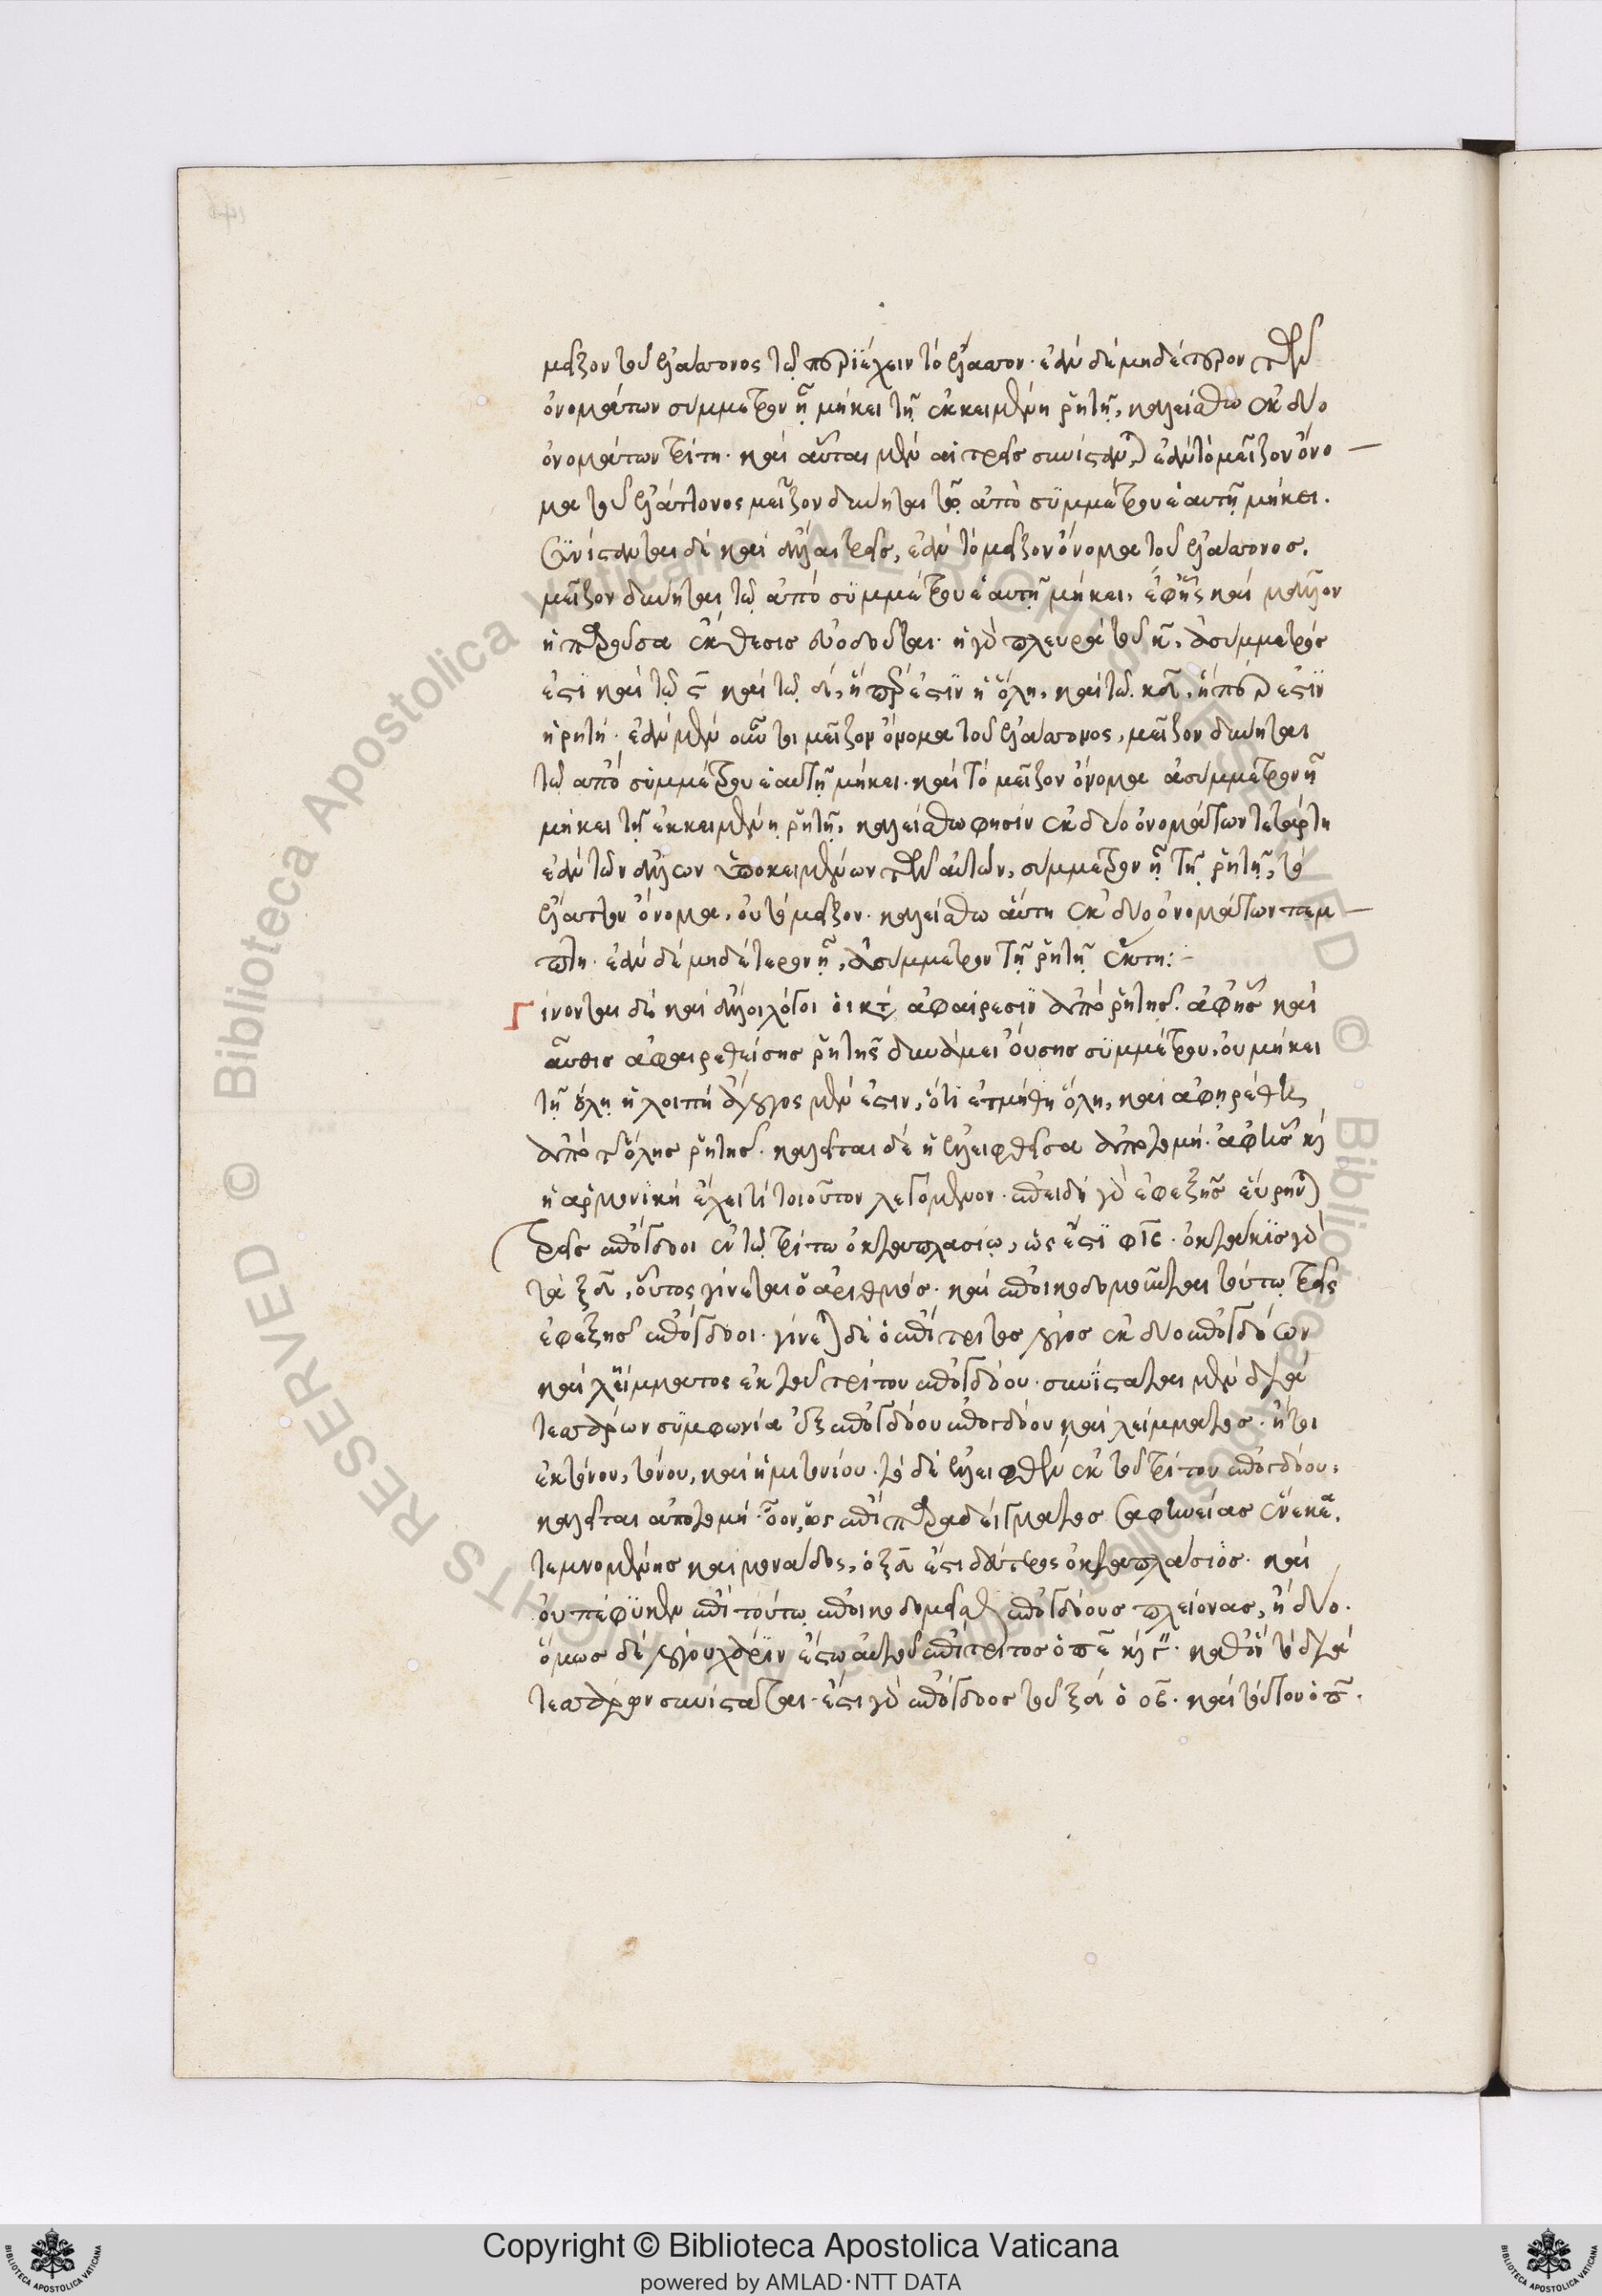 μεῖζον τοῦ ἐλάττονος τῷ περιέχειν τὸ ἔλαττον· ἐὰν δὲ μηδέτερον τῶν
ὀνομάτων σύμμετρον ᾖ μήκει τῇ ἐκκειμένῃ ῥητῇ, καλείσθω ἐκ δύο
ὀνομάτων τρίτη· καὶ αὗται μὲν αἱ τρεῖς συνίστανται ἐὰν τὸ μεῖζον ὄνο
μα τοῦ ἐλάττονος μεῖζον δύνηται τῷ ἀπὸ συμμέτρου ἑαυτῇ μήκει.
συνίστανται δὲ καὶ ἄλλαι τρεῖς, ἐὰν τὸ μεῖζον ὄνομα τοῦ ἐλάττονος.
μεῖζον δύνηται τῷ ἀπὸ συμμέτρου ἑαυτῇ μήκει, ἐφ' ἧς καὶ μᾶλλον
ἡ παροῦσα ἔκθεσις ἡ γὰρ πλευρὰ τοῦ κ, ἀσύμμετρός
ἐστι καὶ τῷ ϛ καὶ τῷ ἥπερ ἐστὶν ἡ ὅλη, καὶ τῷ κδ, ἥπερ ἐστὶν
ἡ ῥητή· ἐὰν μὲν οὖν τι μεῖζον ὄνομα τοῦ ἐλάττονος, μεῖζον δύνηται
τῷ ἀπὸ συμμέτρου ἑαυτῇ μήκει· καὶ τὸ μεῖζον ὄνομα ἀσύμμετρον ᾖ
μήκει τῇ ἐκκειμένῃ ῥητῇ, καλείσθω φησὶν ἐκ δύο ὀνομάτων τετάρτη
ἐὰν τῶν ἄλλων ὑποκειμένων τῶν αὐτῶν, σύμμετρον ᾖ τῇ ῥητῇ, τὸ
ἔλαττον ὄνομα, οὐ τὸ μεῖζον· καλείσθω αὕτη ἐκ δύο ὀνομάτων πέμ
πτη· ἐὰν δὲ μηδέτερον ᾖ, ἀσύμμετρον τῇ ῥητῇ ἕκτη:
Γίνονται δὲ καὶ ἄλλοι λόγοι οἱ κατ' ἀφαίρεσιν ἀπὸ ῥητῆς· ἀφ' ἧς καὶ
αὖθις ἀφαιρεθείσης ῥητῆς δυνάμει οὔσης συμμέτρου, οὐ μήκει
τῇ ὅλῃ ἡ λοιπὴ ἄλογος μέν ἐστιν, ὅτι ἐτμήθη ὅλη, καὶ ἀφῃρέθη
ἀπὸ τῆς ὅλης ῥητῆς· καλεῖται δὲ ἡ ἐλλειφθεῖσα ἀποτομή· ἀφ' ἧς καὶ
ἡ ἁρμονικὴ ἔχει τι τοιοῦτον λεγόμενον· ἐπειδὴ γὰρ ἐφεξῆς εὕρηνται
τρεῖς ἐπόγδοοι ἐν τῷ τρίτῳ ὀκταπλασίῳ, ὅς ἐστι φιβ· ὀκτάκις γὰρ
τὰ ξδ, οὗτος γίνεται ὁ ἀριθμός· καὶ ἐποικοδομοῦνται τούτῳ τρεῖς
ἐφεξῆς ἐπόγδοοι· γίνεται δὲ ὁ ἐπίτριτος λόγος ἐκ δύο ἐπογδόων
καὶ λείμματος ἐκ τοῦ τρίτου ἐπογδόου· συνίσταται μὲν διὰ
τεσσάρων συμφωνία ἐξ ἐπογδόου ἐπογδόου καὶ λείμματος· ἤτοι
ἐκ τόνου, τόνου, καὶ ἡμιτονίου· τὸ δὲ ἐλλειφθὲν ἐκ τοῦ τρίτου ἐπογδόου,
καλεῖται ἀποτομή· οἷον, ὡς ἐπὶ παραδείγματος σαφηνείας ἕνεκα,
τεμνομένης καὶ μονάδος, ὁ ξδ ἐστὶ δεύτερος ὀκταπλάσιος· καὶ
οὐ πέφυκεν ἐπὶ τούτῳ ἐποικοδομεῖσθαι ἐπογδόους πλείονας, ἢ δύο.
ὅμως δὲ λόγου χάριν ἔστω αὐτοῦ ἐπίτριτος ὁ πε καὶ γ· καθ' ὃν τὸ διὰ
τεσσάρων συνίσταται· ἔστι γὰρ ἐπόγδοος τοῦ ξδ ὁ οβ· καὶ τούτου ὁ πα.
Copyright © Biblioteca Apostolica Vaticana
powered by AMLAD·NTT DATA